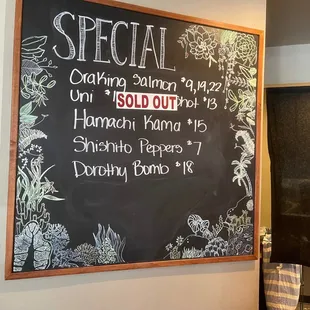 SPECIAL
Oraking Salmon $9,19,22
Uni SOLD OUT hot $13
Hamachi Kama $15
Shishito Peppers $7
Dorothy Bomb $18